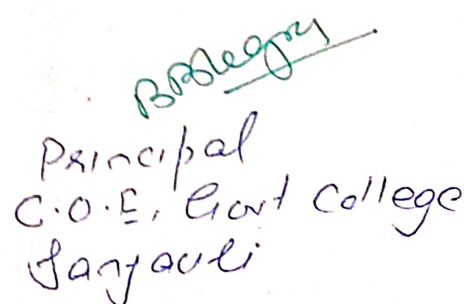 Principal
C.O.E, Govt College
Sanjauli